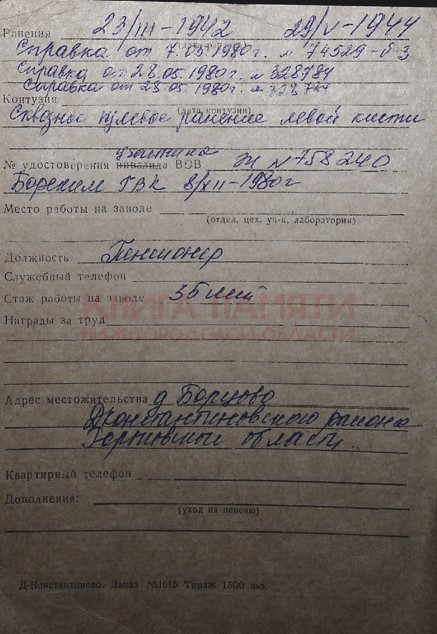 Ранения 23/III-1942 29/V-1944
Справка от 7.05.1980г. № 74529-б-3
Справка от 28.05.1980г. № 328784
Справка от 28.05.1980г. № 328784
Контузия
(дата контузии)
Сквозное пулевое ранение левой кисти
участника
№ удостоверения инвалида ВОВ Ж № 758240
Борским ГВК 8/XII-1980г
Место работы на заводе
(отдел, цех, уч-к, лаборатория)
Должность Пенсионер
Служебный телефон
Стаж работы на заводе 35 лет
КНИГА ПАМЯТИ
НИЖЕГОРОДСКОЙ ОБЛАСТИ
Награды за труд
Адрес местожительства д Борцово
Дконстантиновского района
Горьковской области.
Квартирный телефон
Дополнения:
(уход на пенсию)
Д-Константиново. Заказ №1615 Тираж 1500 экз.